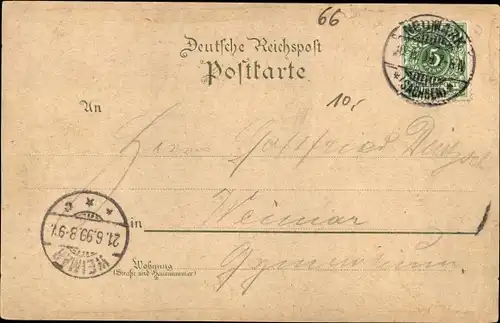 66
NEUMARK
(SACHSEN)
5
Deutsche Reichspost
Postkarte
An
10,-
Herrn Gottfried
in Weimar
Gymnasium
Wohnung
(Straße und Hausnummer)
WEIMAR
21.6.99.8-9V.
* * c